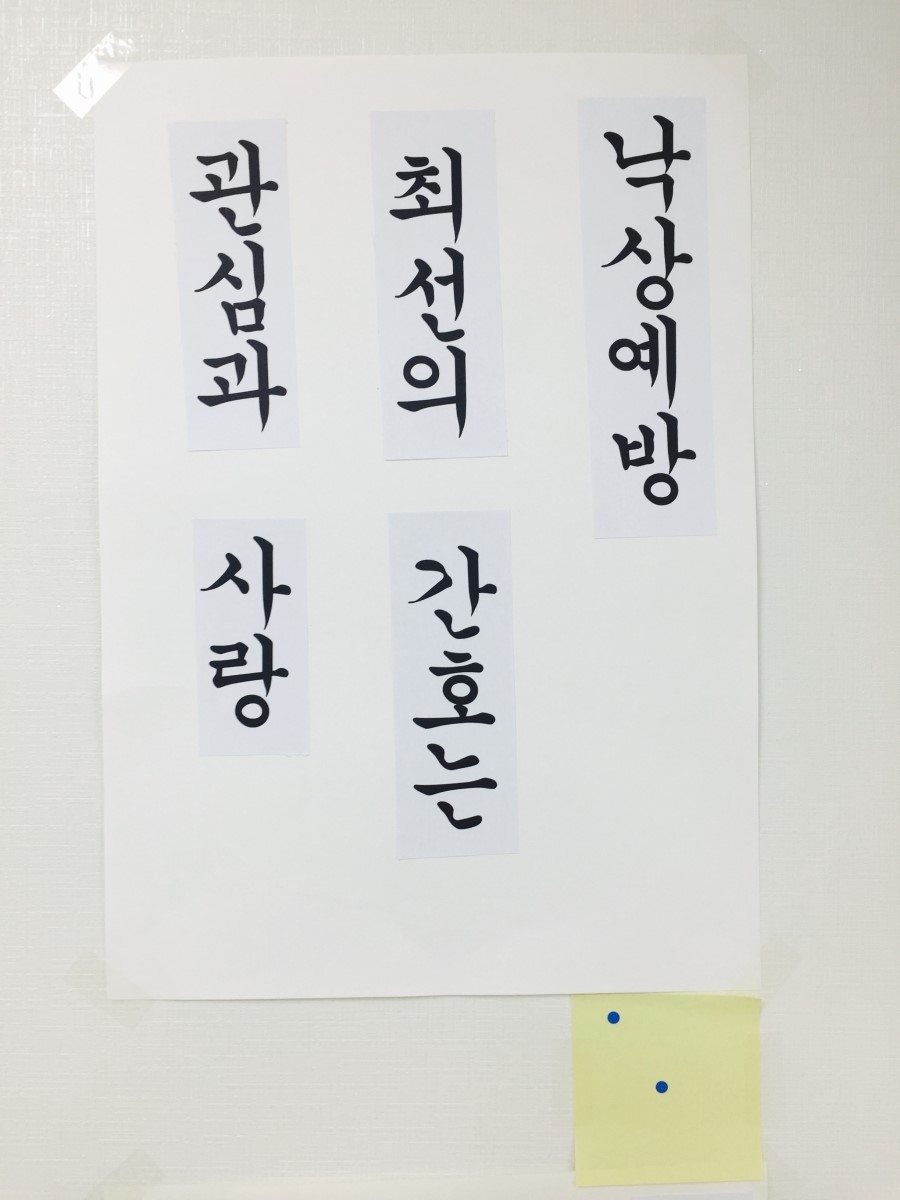 낙상예방
최선의
간호는
관심과
사랑